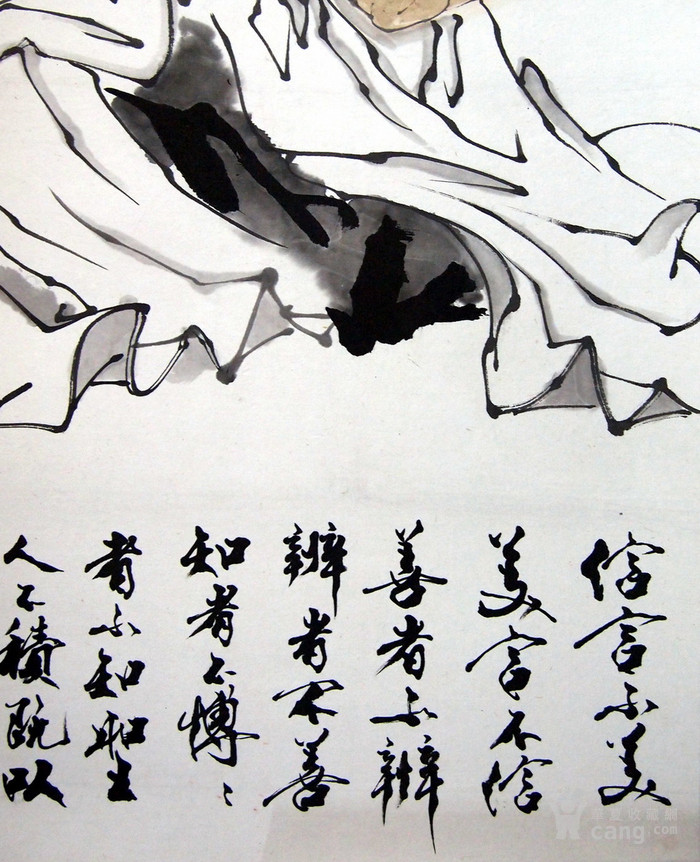 信言不美
美言不信
善者不辯
辯者不善
知者不博〻
者不知聖
人不積既以
华夏收藏网
cang.com